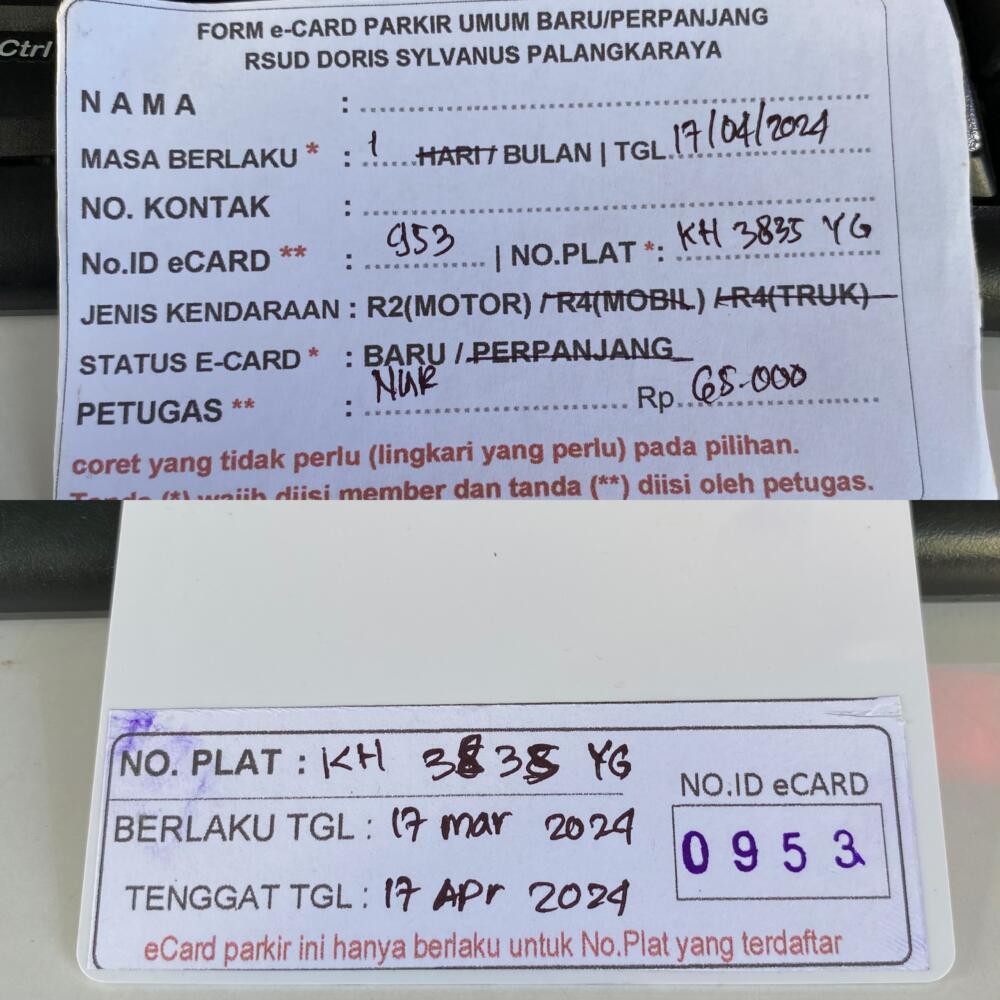 Ctrl
FORM e-CARD PARKIR UMUM BARU/PERPANJANG
RSUD DORIS SYLVANUS PALANGKARAYA
NAMA :
MASA BERLAKU * : 1 HARI / BULAN | TGL 17/04/2024
NO. KONTAK :
No.ID eCARD ** : 953 | NO.PLAT *: KH 3835 YG
JENIS KENDARAAN : R2(MOTOR) / R4(MOBIL) / R4(TRUK)
STATUS E-CARD * : BARU / PERPANJANG
PETUGAS ** : NUR Rp 65.000
coret yang tidak perlu (lingkari yang perlu) pada pilihan.
Tanda (*) wajib diisi member dan tanda (**) diisi oleh petugas.
NO. PLAT : KH 3835 YG
BERLAKU TGL : 17 mar 2024
TENGGAT TGL : 17 APr 2024
NO.ID eCARD
0953
eCard parkir ini hanya berlaku untuk No.Plat yang terdaftar